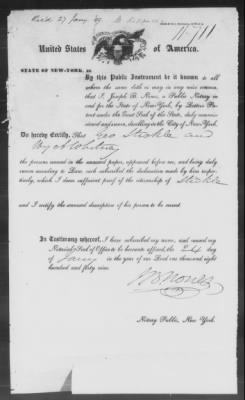 Recd 27 Jany 49.
11711
United States of America.
STATE OF NEW-YORK, ss.
By this Public Instrument be it known to all
whom the same doth or may in any wise concern,
that I, Joseph B. Nones, a Public Notary in
and for the State of New-York, by Letters Pa-
tent under the Great Seal of the State, duly commis-
sioned and sworn, dwelling in the City of New-York.
Do hereby Certify, That Geo Stickle and
Wm A Whitney
the persons named in the annexed paper, appeared before me, and being duly
sworn according to Law each subscribed the declaration made by him respec-
tively, which I deem sufficient proof of the citizenship of Stickle
and I certify the annexed description of the person to be exact
In Testimony whereof, I have subscribed my name, and caused my
Notarial Seal of Office to be hereunto affixed, the day
of Jany in the year of our Lord one thousand eight
hundred and forty nine
J B Nones
Notary Public, New York.